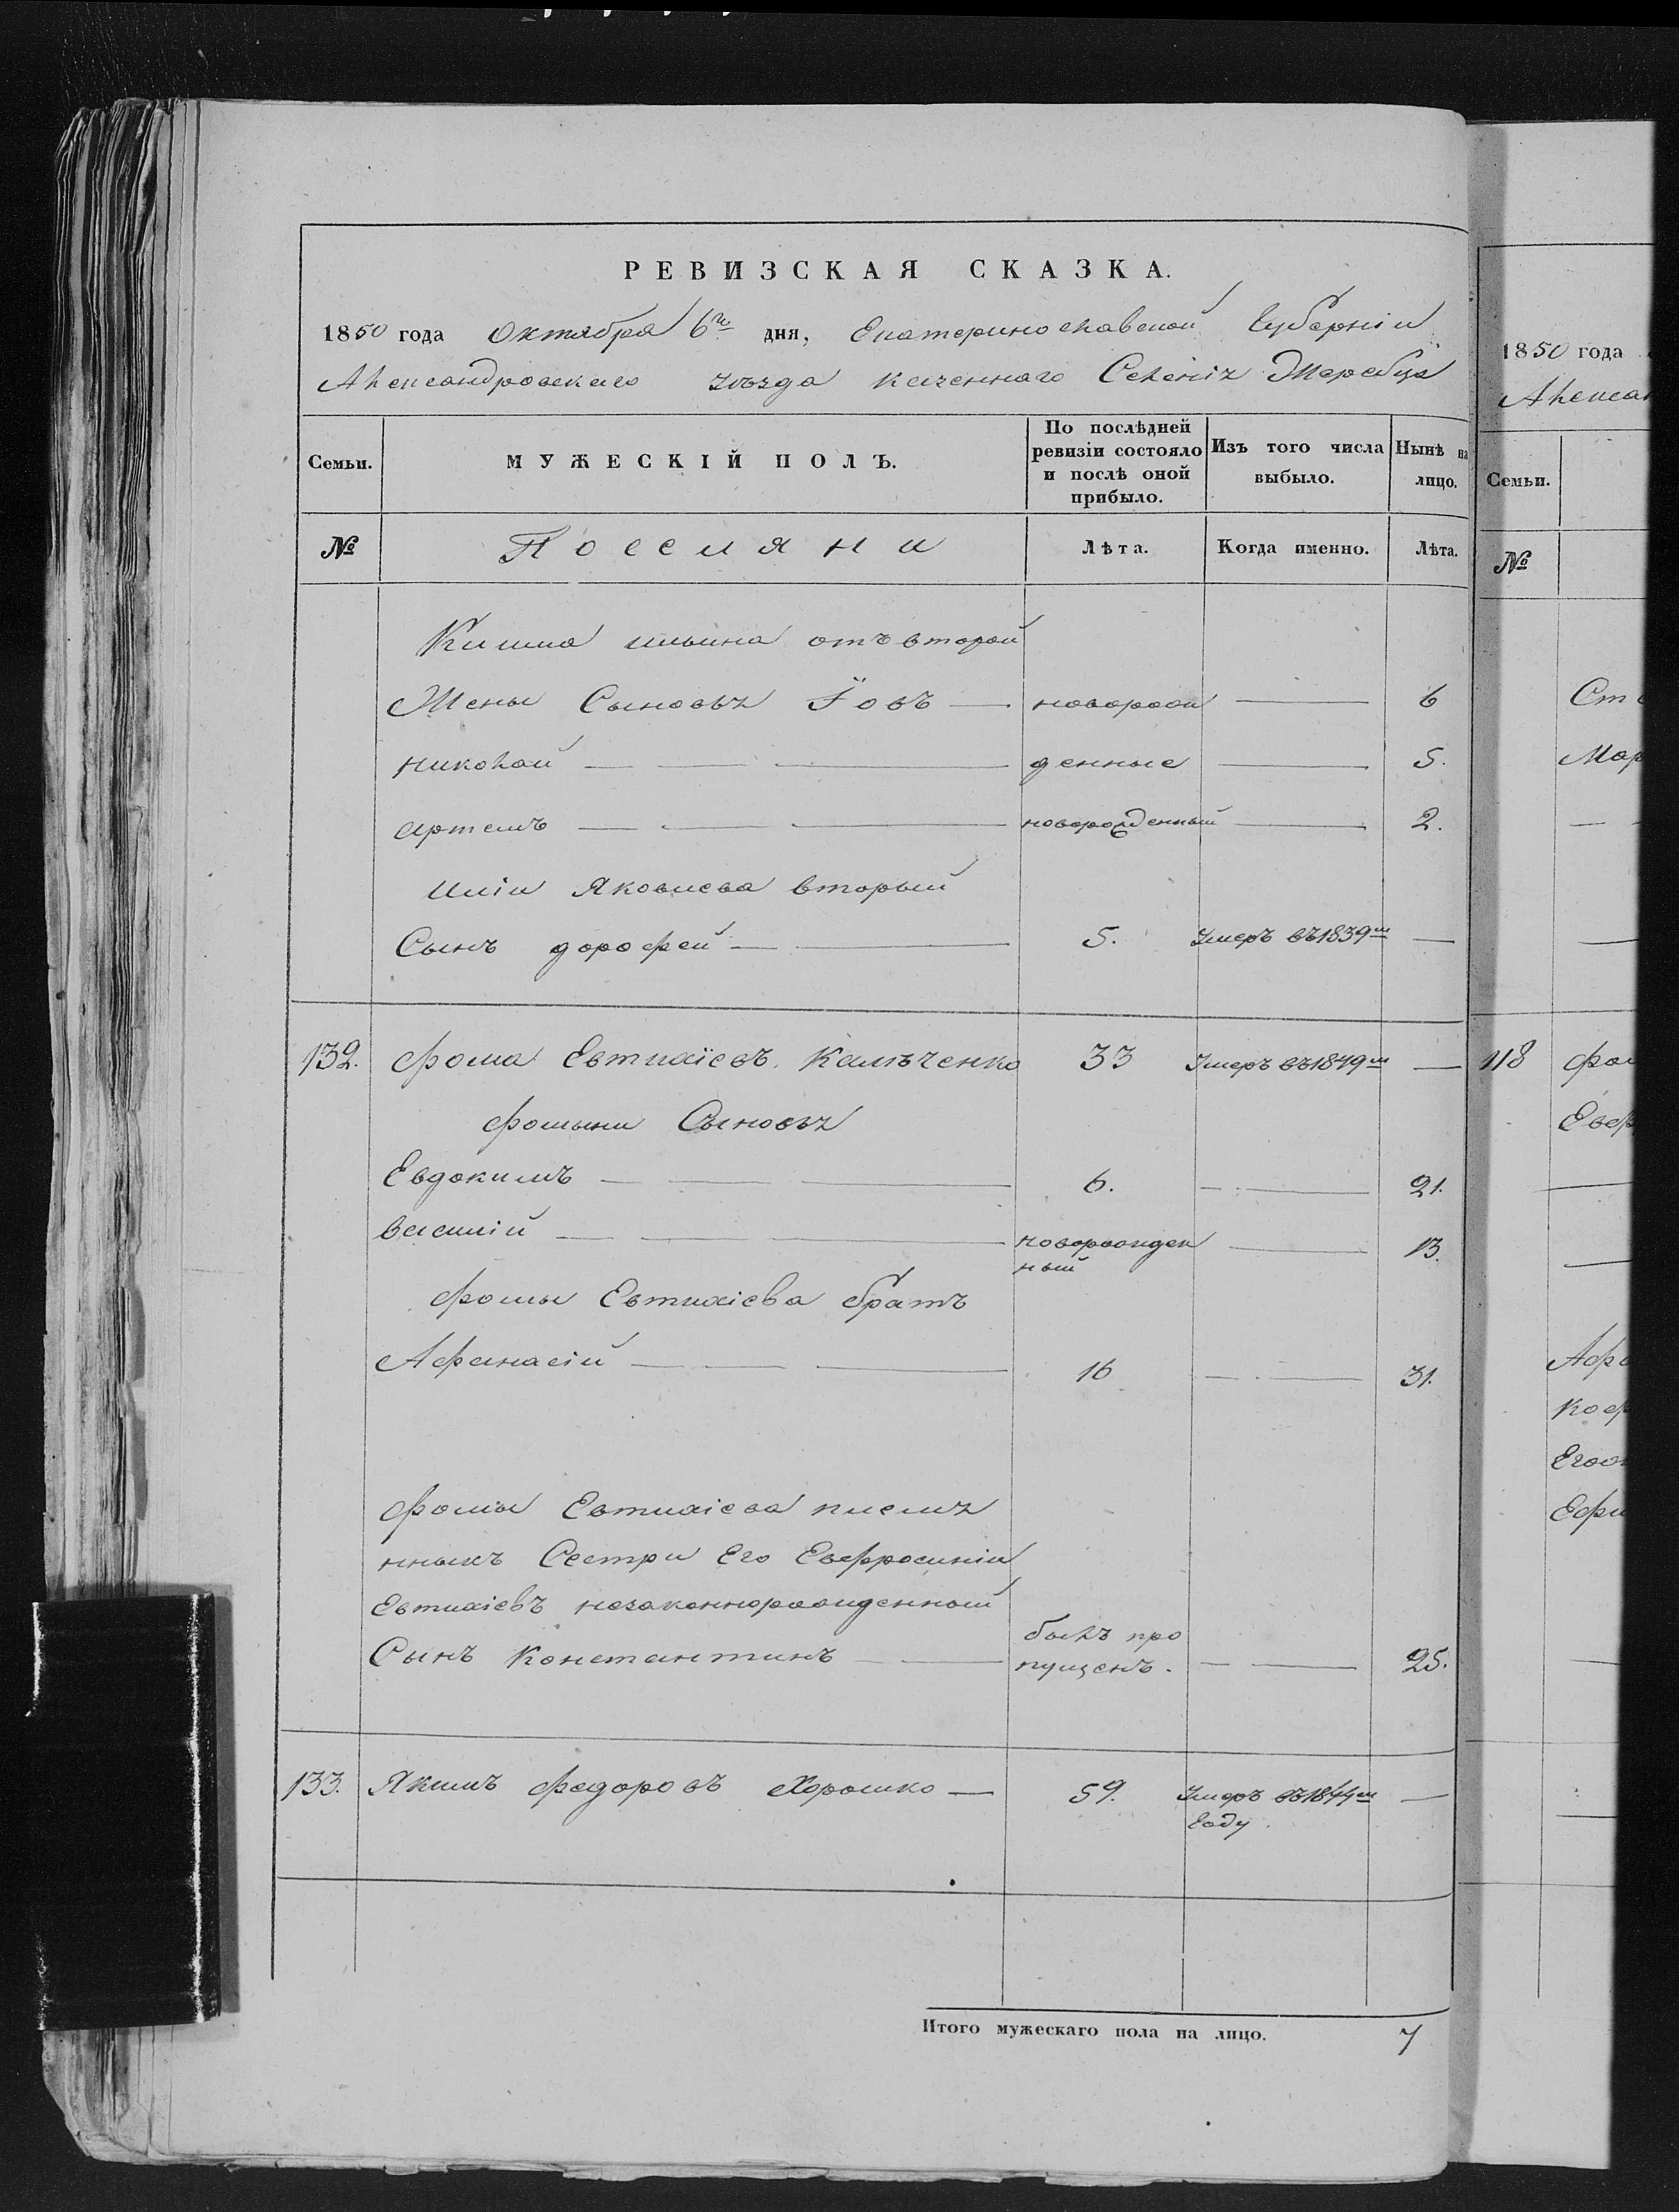 РЕВИЗСКАЯ СКАЗКА.
1850 года Октября 6го дня, Екатеринославской Губерніи
Александровскаго уѣзда казеннаго Селенія Жеребца
Семьи. МУЖЕСКІЙ ПОЛЪ. По послѣдней ревизіи состояло и послѣ оной прибыло. Изъ того числа выбыло. Нынѣ на лицо.
№ Поселяни Лѣта. Когда именно. Лѣта.
ильина отъ второй
Жены Сыновья Іовъ — новорож — 6
николай — денные — 5.
артемъ — новорожденный — 2.
иліи Яковлева вторый
Сынъ дорофей — 5. Умеръ въ 1839м —
132. фома Евтихіевъ. 33 Умеръ въ 1849м —
фомыни Сыновья
Евдокимъ — 6. — 21.
василій — новорожден — 13.
ный
фомы Евтихіева братъ
Афанасій — 16 — 31.
фомы Евтихіева племя
нныкъ Сестри Его Евфросиніи
Евтихіевъ незаконнорожденный
Сынъ Константинъ — былъ про
пущенъ. — 25.
133. Якимъ федоровъ Хорошко — 59. Умеръ въ 1844м —
Году.
Итого мужескаго пола на лицо. 7
1850 года
Алексан
Семьи.
№
Ст
Мар
118 фом
Евф
Афа
Еф